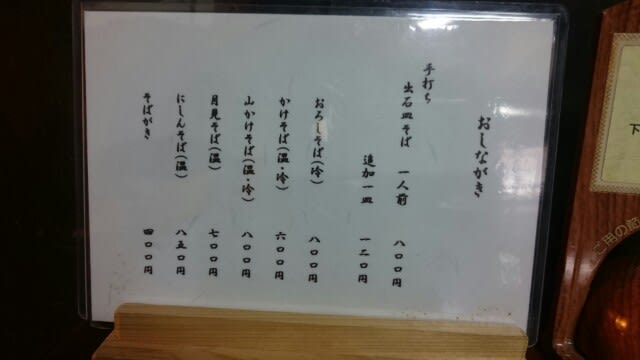 おしながき
手打ち
出石皿そば 一人前 八〇〇円
追加一皿 一二〇円
おろしそば(冷) 八〇〇円
かけそば(温・冷) 六〇〇円
山かけそば(温・冷) 八〇〇円
月見そば(温) 七〇〇円
にしんそば(温) 八五〇円
そばがき 四〇〇円
下
ご用の